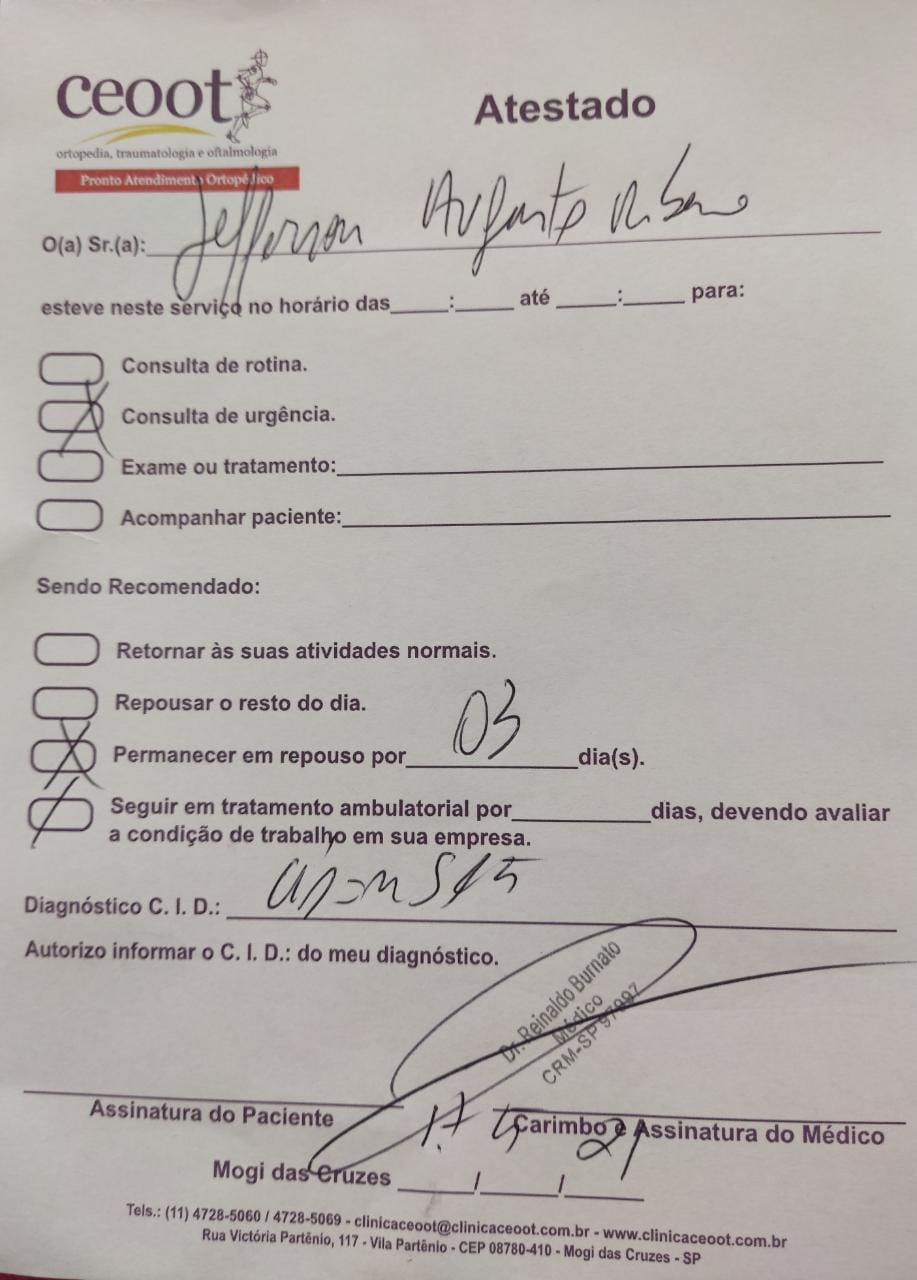 ceoot
ortopedia, traumatologia e oftalmologia
Pronto Atendimento Ortopédico
Atestado
O(a) Sr.(a): Jefferson Augusto
esteve neste serviço no horário das____:____ até ____:____ para:
Consulta de rotina.
X Consulta de urgência.
Exame ou tratamento:
Acompanhar paciente:
Sendo Recomendado:
Retornar às suas atividades normais.
Repousar o resto do dia.
X Permanecer em repouso por 03 dia(s).
/ Seguir em tratamento ambulatorial por________dias, devendo avaliar
a condição de trabalho em sua empresa.
Diagnóstico C. I. D.:
Autorizo informar o C. I. D.: do meu diagnóstico.
Dr. Reinaldo Burnato
Médico
CRM-SP
Assinatura do Paciente
Carimbo e Assinatura do Médico
Mogi das Cruzes ____/____/____
Tels.: (11) 4728-5060 / 4728-5069 - clinicaceoot@clinicaceoot.com.br - www.clinicaceoot.com.br
Rua Victória Partênio, 117 - Vila Partênio - CEP 08780-410 - Mogi das Cruzes - SP